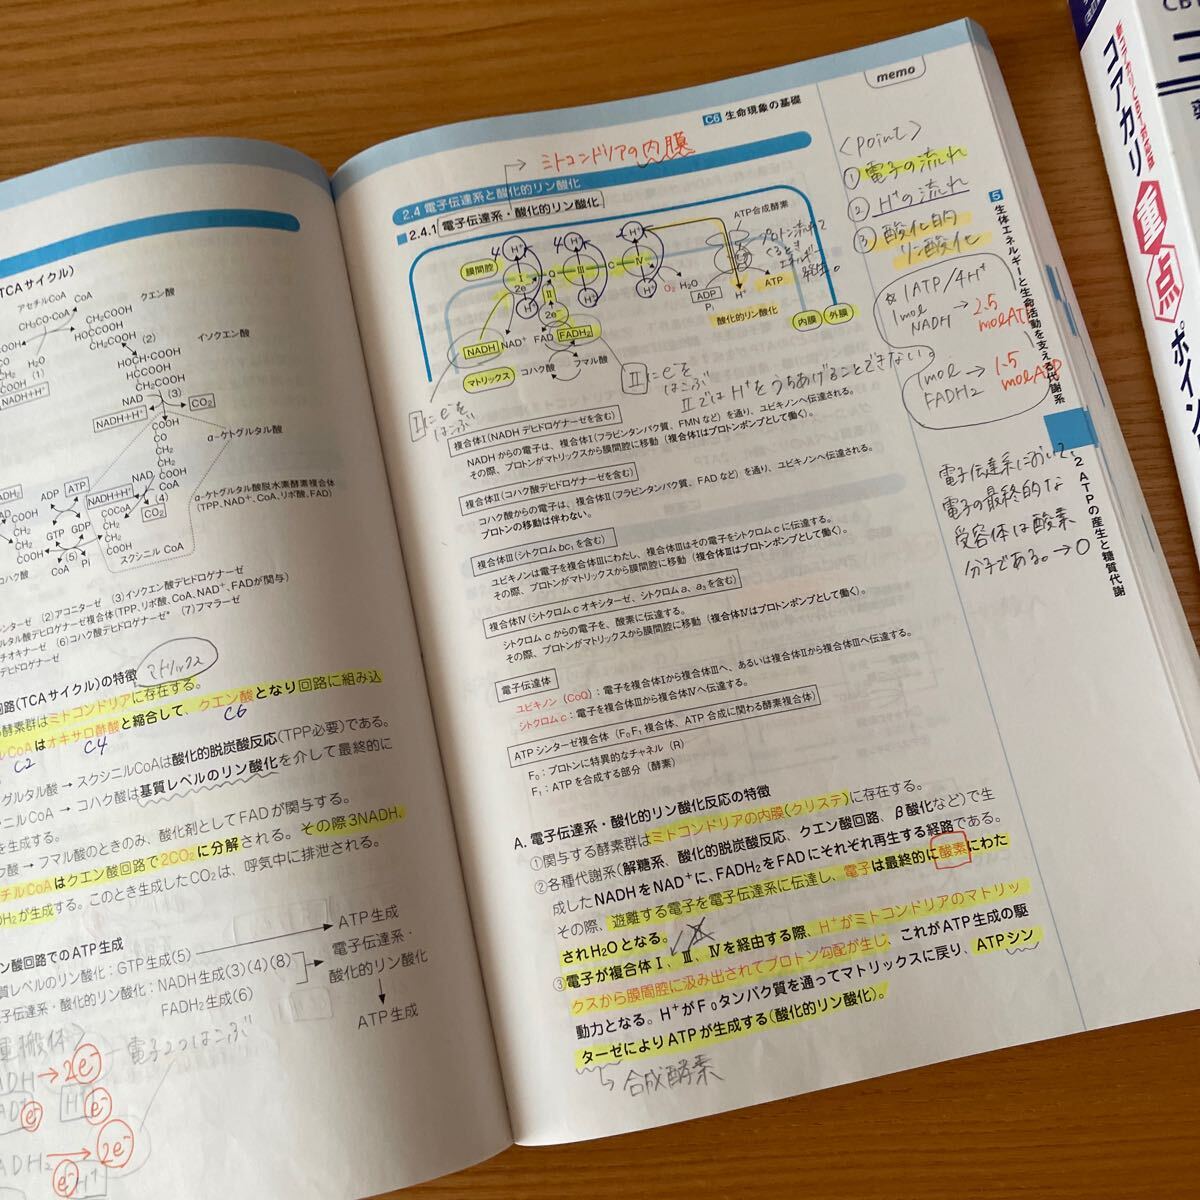 TCAサイクル)
アセチルCoA CoA クエン酸
CH₃CO-CoA
CH₂COOH
HOCCOOH
CH₂COOH
イソクエン酸
(2)
HOCH·COOH
HCCOOH
CH₂COOH
NAD (3)
NADH+H⁺
CO₂
α-ケトグルタル酸
α-ケトグルタル酸脱水素酵素複合体
(TPP、NAD⁺、CoA、リポ酸、FAD)
ADP ATP
GTP GDP
NADH+H⁺ NAD
(4)
CO₂
(5)
CoA Pi
スクシニル CoA
コハク酸
(2)アコニターゼ (3)イソクエン酸デヒドロゲナーゼ
タル酸デヒドロゲナーゼ複合体(TPP、リポ酸、CoA、NAD⁺、FADが関与)
チオキナーゼ (6)コハク酸デヒドロゲナーゼ* (7)フマラーゼ
デヒドロゲナーゼ
回路(TCAサイクル)の特徴 マトリックス
酵素群はミトコンドリアに存在する。
ルCoAはオキサロ酢酸と縮合して、クエン酸となり回路に組み込
C2 C4 C6
グルタル酸 → スクシニルCoAは酸化的脱炭酸反応(TPP必要)である。
ニルCoA → コハク酸は基質レベルのリン酸化を介して最終的に
を生成する。
酸 → フマル酸のときのみ、酸化剤としてFADが関与する。
チルCoAはクエン酸回路で2CO₂に分解される。その際3NADH、
DH₂が生成する。このとき生成したCO₂は、呼気中に排泄される。
ン酸回路でのATP生成
質レベルのリン酸化：GTP生成(5) → ATP生成
子伝達系・酸化的リン酸化：NADH生成(3)(4)(8)
FADH₂生成(6)
電子伝達系・
酸化的リン酸化
ATP生成
電子2つはこぶ
ADH → 2e⁻
e⁻ H⁺ e⁻
ADH₂ → 2e⁻
e⁻ H⁺
memo
C6 生命現象の基礎
ミトコンドリアの内膜
2.4 電子伝達系と酸化的リン酸化
2.4.1 電子伝達系・酸化的リン酸化
膜間腔
4 H⁺ 4 H⁺ H⁺
ATP合成酵素
I Q III C IV
2e⁻ II
2e⁻
H⁺ H⁺ H⁺
O₂ H₂O
ADP
Pi
H⁺ ATP
酸化的リン酸化
内膜 外膜
NADH NAD⁺ FAD FADH₂
マトリックス コハク酸 フマル酸
Iにe⁻を
はこぶ
IIにe⁻を
はこぶ
IIではH⁺をうちあげることできない。
複合体I(NADHデヒドロゲナーゼを含む)
NADHからの電子は、複合体I(フラビンタンパク質、FMNなど)を通り、ユビキノンへ伝達される。
その際、プロトンがマトリックスから膜間腔に移動(複合体Iはプロトンポンプとして働く)。
複合体II(コハク酸デヒドロゲナーゼを含む)
コハク酸からの電子は、複合体II(フラビンタンパク質、FADなど)を通り、ユビキノンへ伝達される。
プロトンの移動は伴わない。
複合体III(シトクロム bc₁を含む)
ユビキノンは電子を複合体IIIにわたし、複合体IIIはその電子をシトクロムcに伝達する。
その際、プロトンがマトリックスから膜間腔に移動(複合体IIIはプロトンポンプとして働く)。
複合体IV(シトクロムcオキシターゼ、シトクロムa、a₃を含む)
シトクロムcからの電子を、酸素に伝達する。
その際、プロトンがマトリックスから膜間腔に移動(複合体IVはプロトンポンプとして働く)。
電子伝達体
ユビキノン(CoQ)：電子を複合体Iから複合体IIIへ、あるいは複合体IIから複合体IIIへ伝達する。
シトクロムc：電子を複合体IIIから複合体IVへ伝達する。
ATPシンターゼ複合体(F₀F₁複合体、ATP合成に関わる酵素複合体)
F₀：プロトンに特異的なチャネル(R)
F₁：ATPを合成する部分(酵素)
A. 電子伝達系・酸化的リン酸化反応の特徴
①関与する酵素群はミトコンドリアの内膜(クリステ)に存在する。
②各種代謝系(解糖系、酸化的脱炭酸反応、クエン酸回路、β酸化など)で生
成したNADHをNAD⁺に、FADH₂をFADにそれぞれ再生する経路である。
その際、遊離する電子を電子伝達系に伝達し、電子は最終的に酸素にわた
されH₂Oとなる。
③電子が複合体I、III、IVを経由する際、H⁺がミトコンドリアのマトリッ
クスから膜間腔に汲み出されてプロトン勾配が生じ、これがATP生成の駆
動力となる。H⁺がF₀タンパク質を通ってマトリックスに戻り、ATPシン
ターゼによりATPが生成する(酸化的リン酸化)。
合成酵素
<point>
① 電子の流れ
② H⁺の流れ
③ 酸化的
リン酸化
☆ 1ATP/4H⁺
1mol
NADH → 2.5
molATP
1mol
FADH₂ → 1.5
molATP
電子伝達系において、
電子の最終的な
受容体は酸素
分子である。→○
5 生体エネルギーと生命活動を支える代謝系
2 ATPの産生と糖質代謝
コアカリ重点ポイン